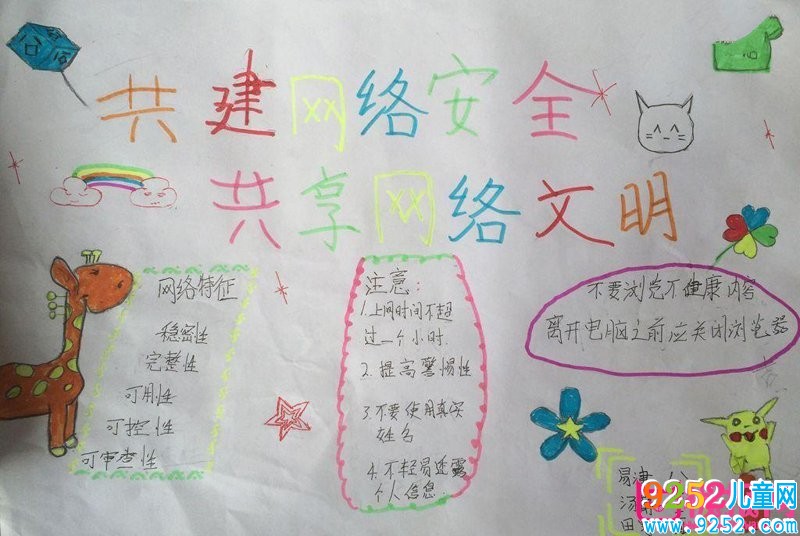 共建网络安全
共享网络文明
网络特征
稳密性
完整性
可用性
可控性
可审查性
注意:
1.上网时间不超
过一个小时.
2.提高警惕性
3.不要使用真实
姓名
4.不轻易透露
个人信息.
不要浏览不健康内容
离开电脑之前应关闭浏览器
易津
汤
田
9252儿童网
www.9252.com